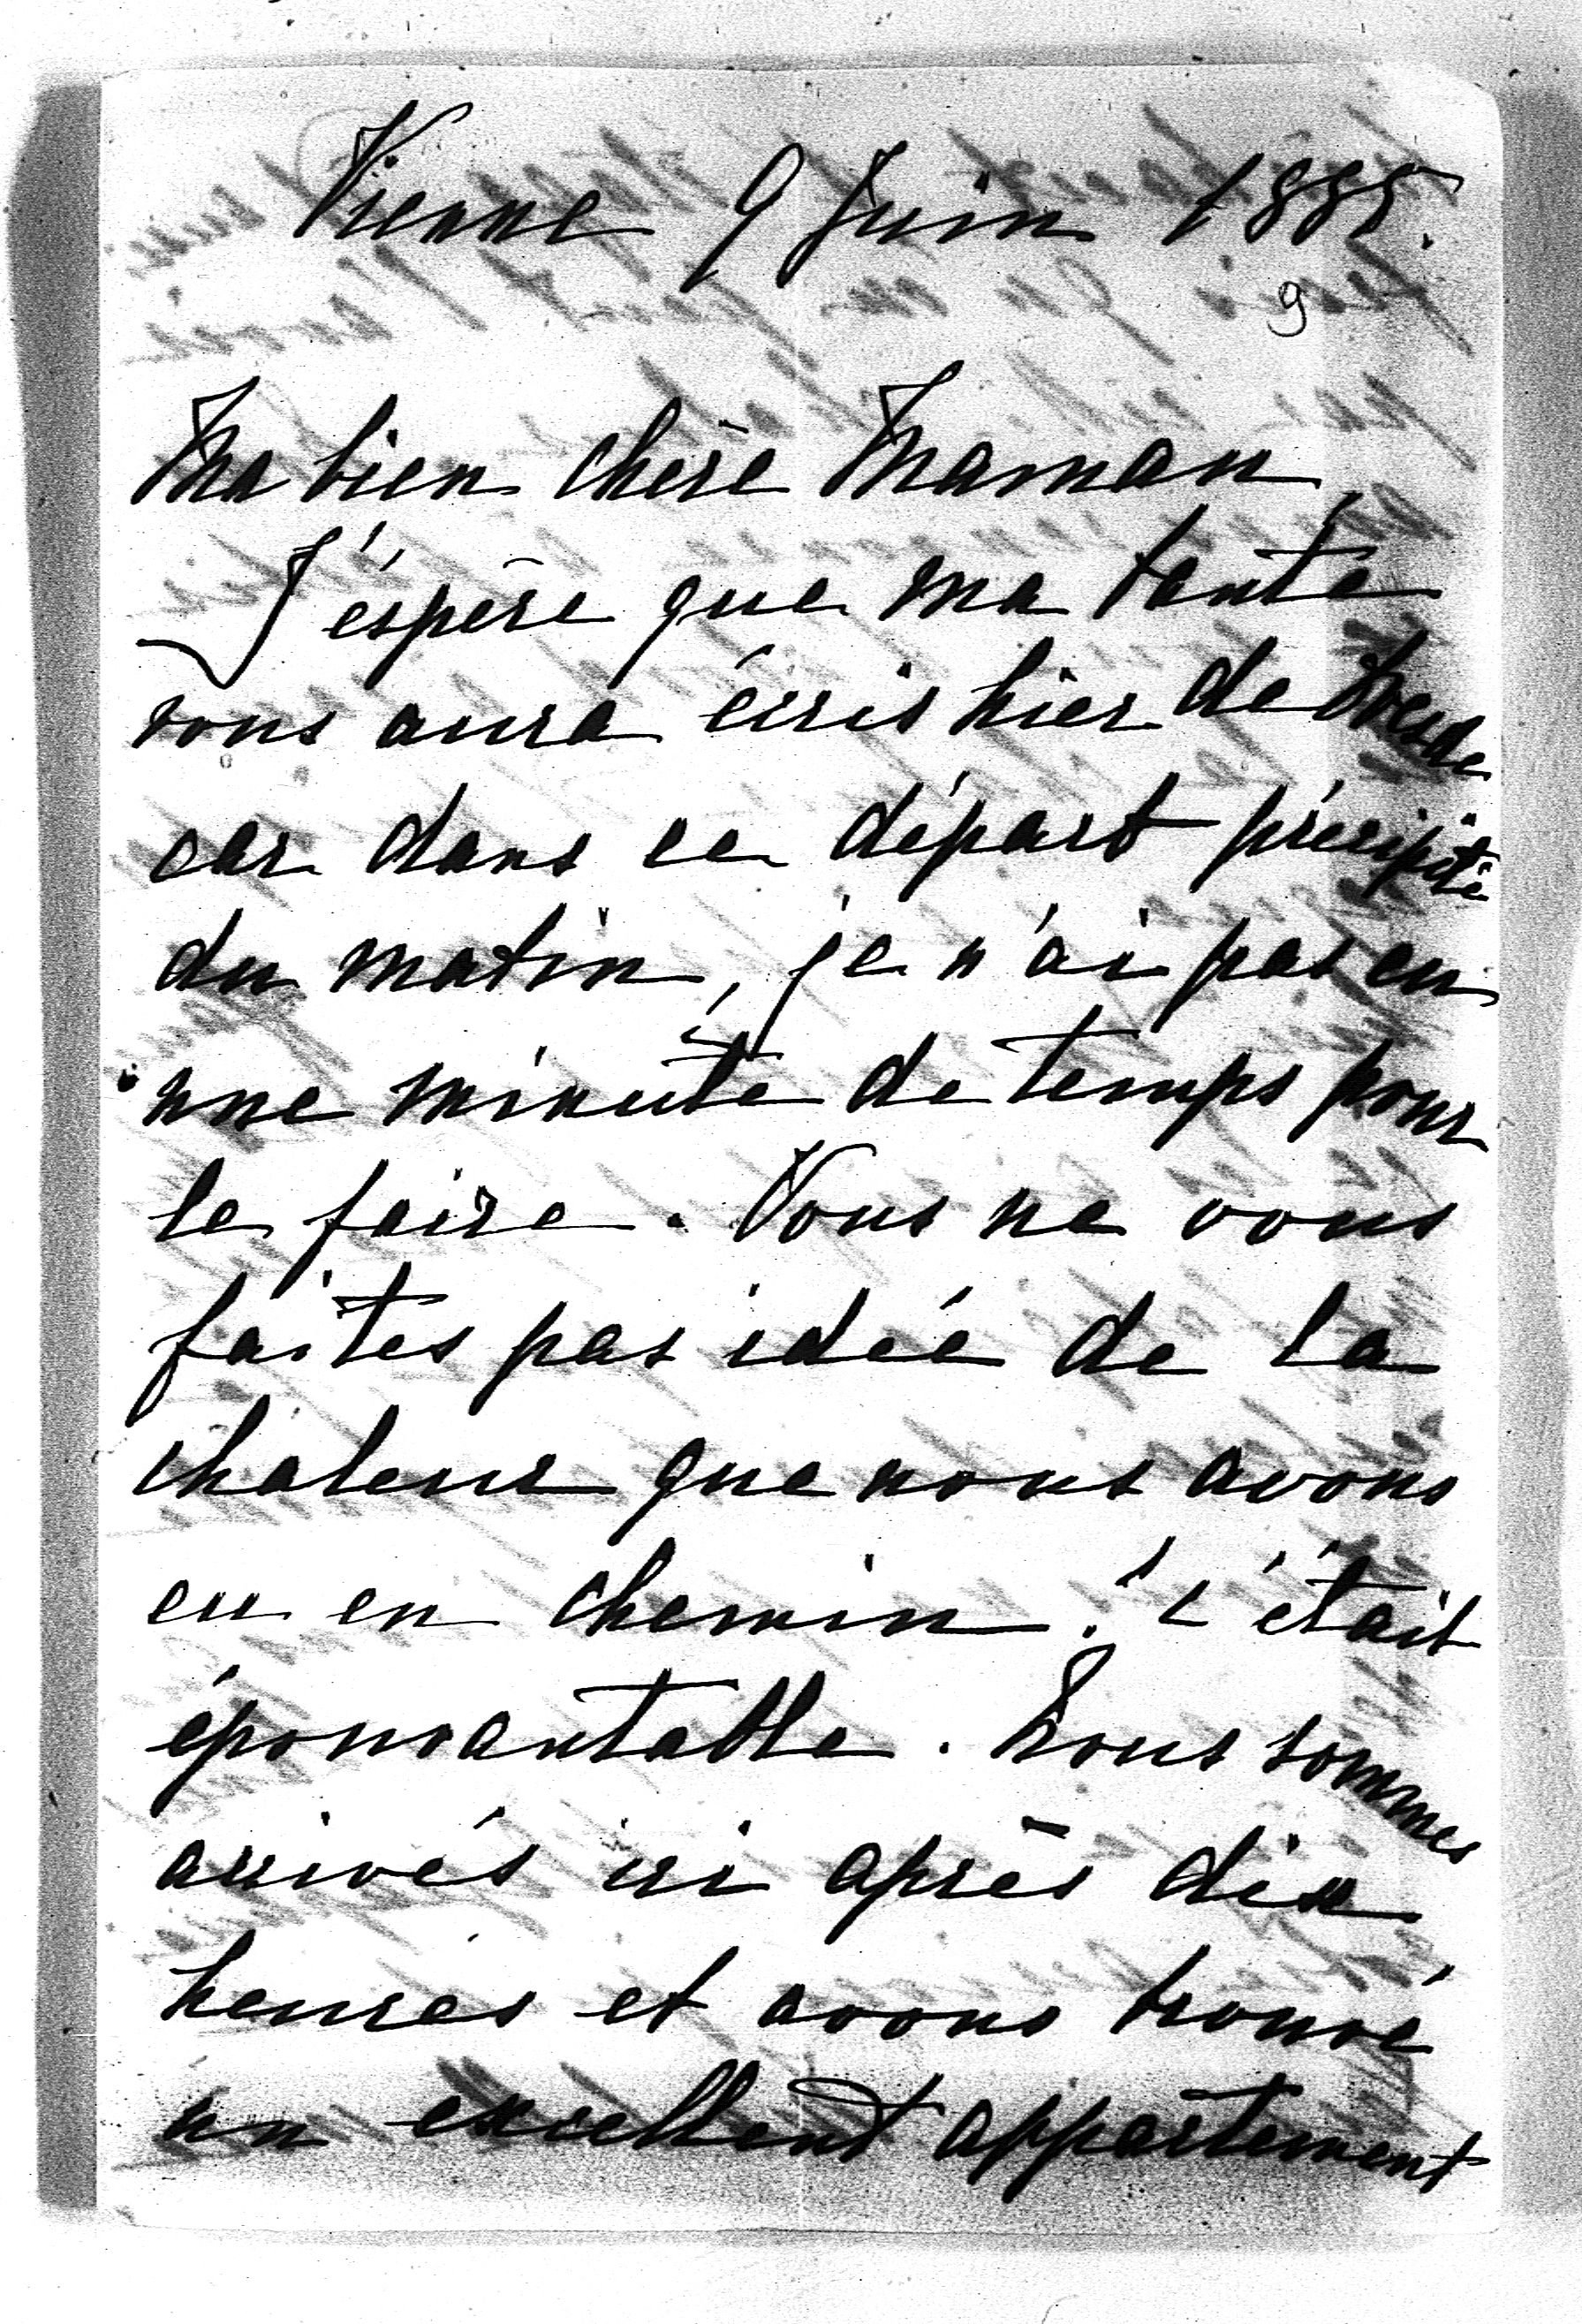 Vienne 9 Juin 1885.
9
Ma bien chère Maman,
J'éspère que ma tante
vous aura écris hier de Dresde
car dans ce départ précipité
du matin, je n'ai pas eu
une minute de temps pour
le faire. Vous ne vous
faites pas idée de la
chaleur que nous avons
eu en chemin! C'était
épouvantable. Nous sommes
arrivés ici après dix
heures et avons trouvé
un excellent appartement